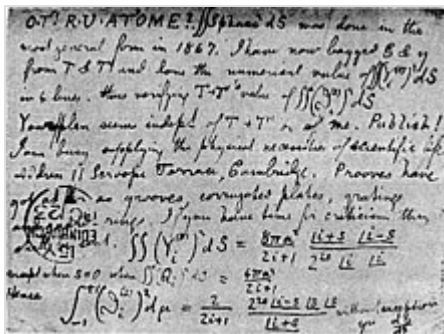 O.T'! R.U. AT 'OME? ∬Spharc² dS was done in the
most general form in 1867. I have now bagged ξ & η
from T & T' and done the numerical value of ∬(Yᵢ⁽ˢ⁾)² dS
in 6 lines. thus verifying T+T''s value of ∬(ϑᵢ⁽ˢ⁾)² dS
Your plan seems indept of T+T' or of me. Publish!
I am busy supplying the physical necessities of scientific life
address 11 Scroope Terrace, Cambridge. Prooves have
got as far as grooves, corrugated plates, gratings
rings. If you have time for criticism they
∬(Yᵢ⁽ˢ⁾)² dS = 8πa²/(2i+1) · |i+s |i−s / 2²ˢ |i |i
except when s=0 when ∬(Qᵢ)² dS = 4πa²/(2i+1)
Hence
∫₋₁⁺¹ (ϑᵢ⁽ˢ⁾)² dμ = 2/(2i+1) · 2²ˢ |i−s |s |s / |i+s without exception
dp/dt